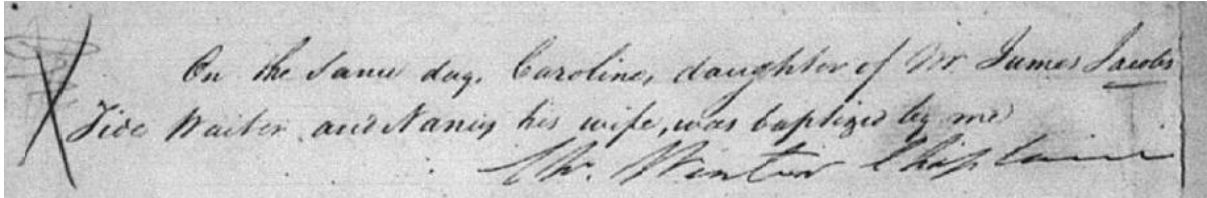 On the same day, Caroline, daughter of Mr. James Jacobs
Tide Waiter and Nancy his wife, was baptized by me
Chr. Winter Chaplain